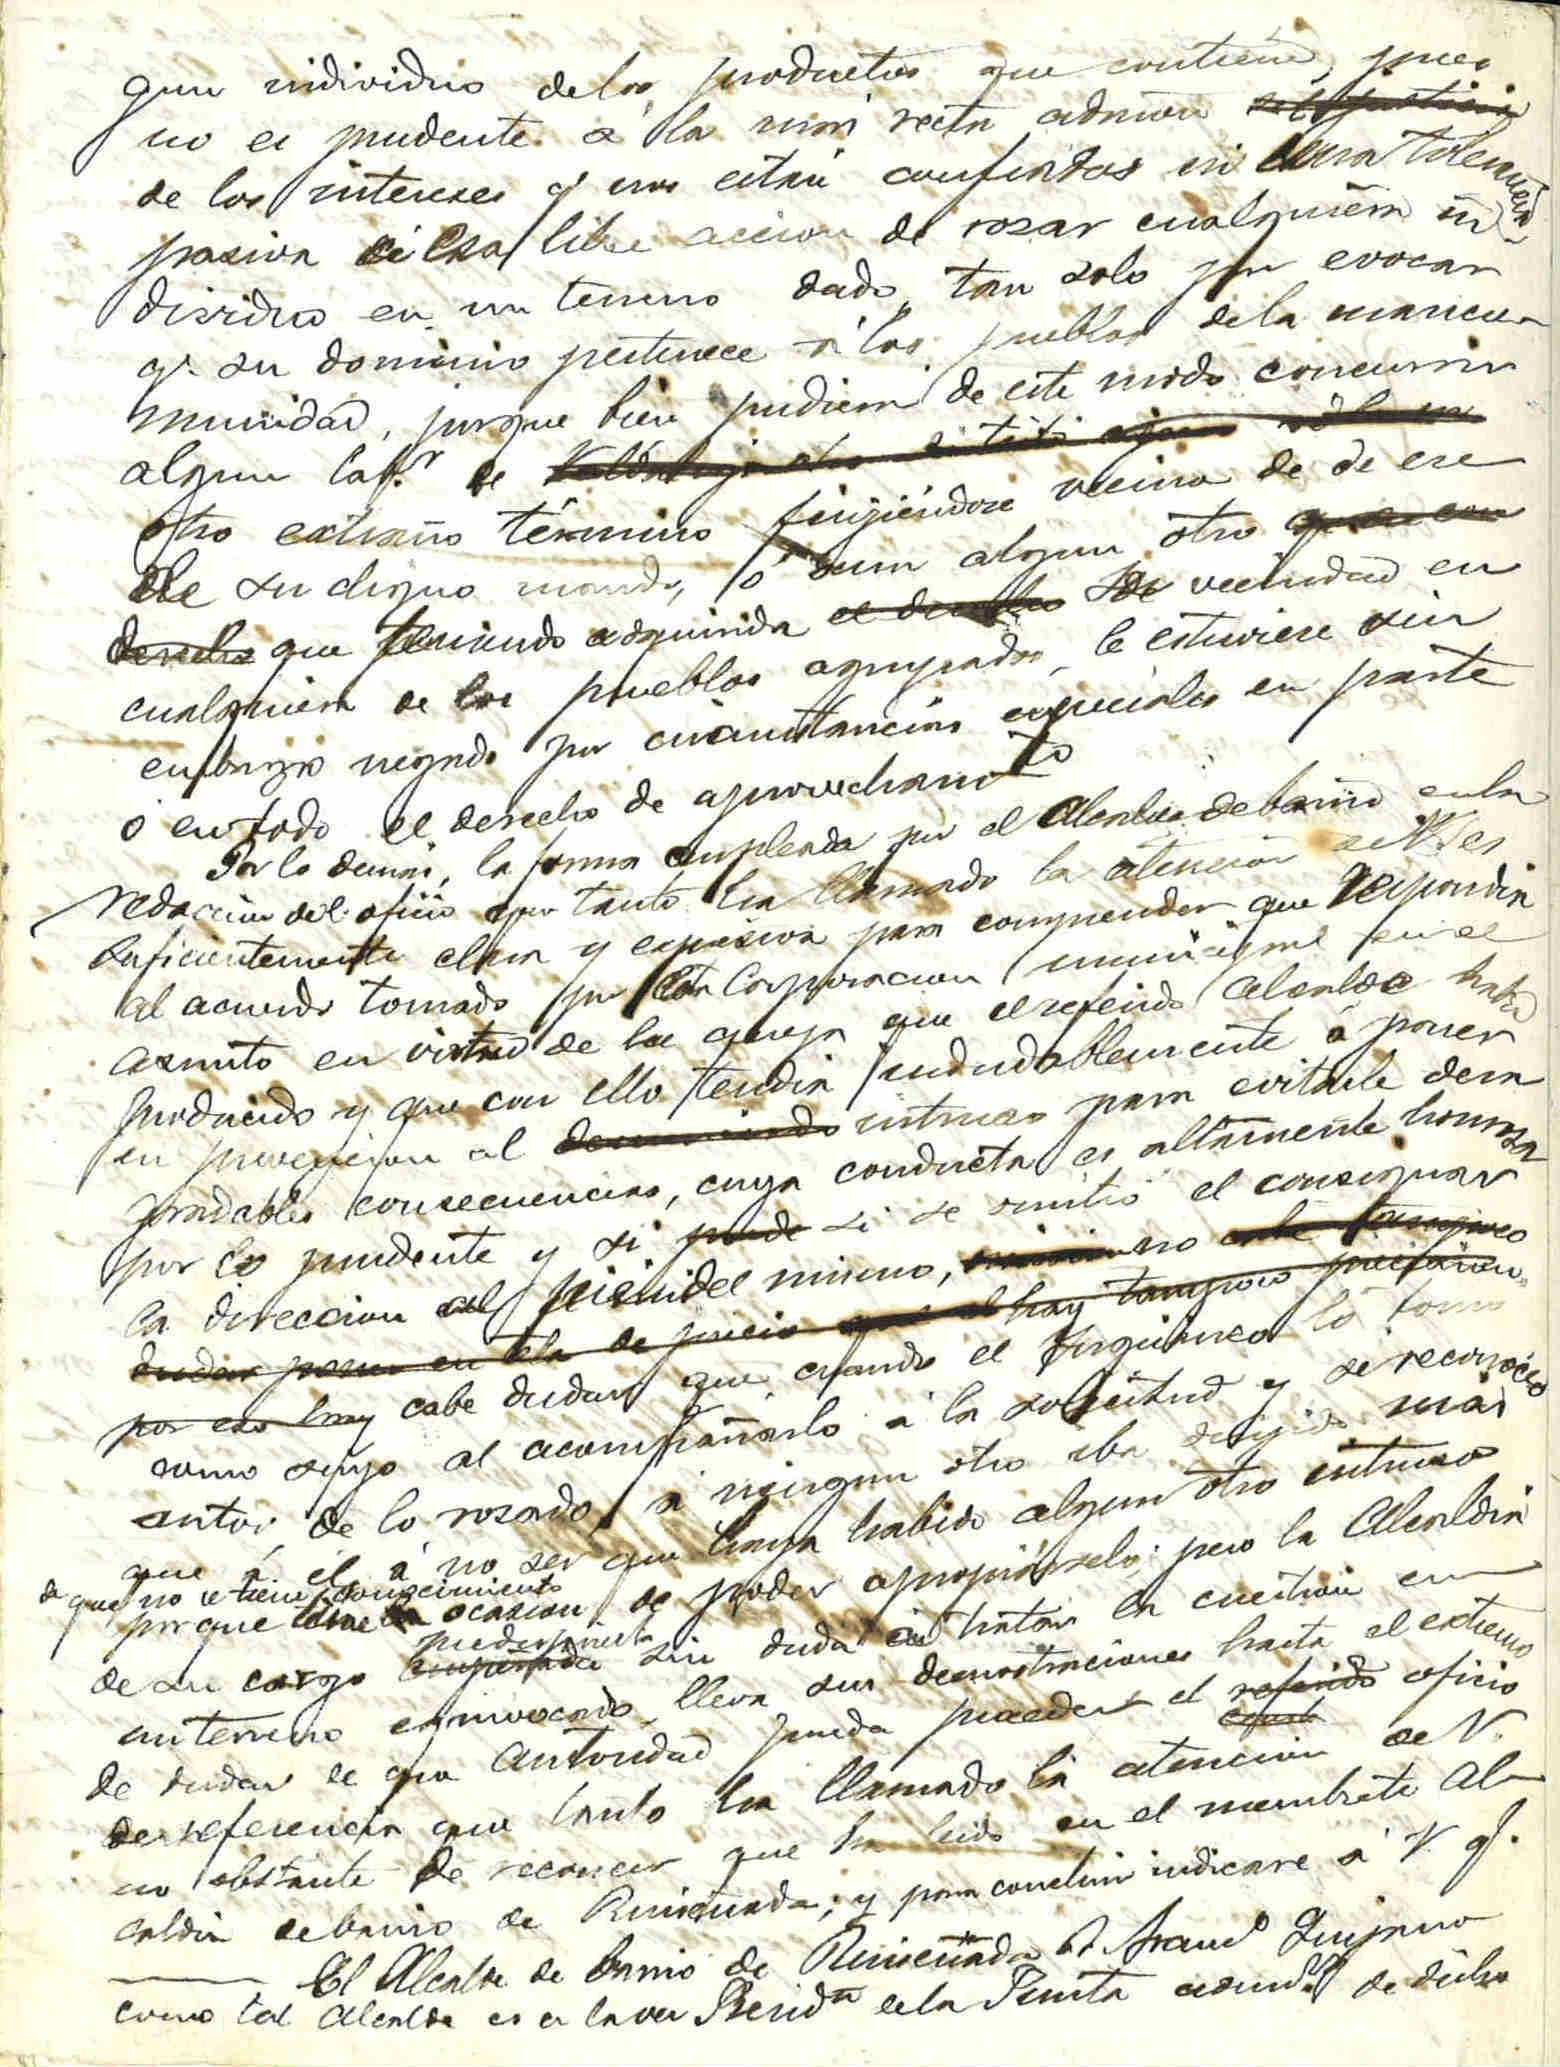 gun individuo delos productos que contiene, pues
no es prudente á la mas recta admon
de los intereses q. nos están confiados ni tolerancia
pasiva ni esa libre accion de rozar cualquiera in-
dividuo en un terreno dado, tan solo por evocar
q. su dominio pertenece á los pueblos dela mancu-
munidad, porque bien pudiera de este modo concurrir
algun de
otro extraño término finjiéndose vecino de de ese
de su digno mando, ó bien algun otro que se con
derecho que teniendo adquirida el derecho de vecindad en
cualquiera de los pueblos agrupados, le estuviere sin
embargo negado por circunstancias especiales en parte
ó en todo el derecho de aprovecham.to
Por lo demas, la forma empleada por el Alcalde de barrio enla
redaccion del oficio que tanto ha llamado la atencion de V. es
suficientemente clara y espresiva para comprender que respondia
al acuerdo tomado por esta Corporacion municipal en el
asunto en virtud de la queja que el referido Alcalde habia
producido y que con ello tendia indudablemente á poner
en prevencion al denunciado intruso para evitarle desa
gradables consecuencias, cuya conducta es altamente honrosa
por lo prudente y si puede si se omitió el consignar
la direccion al pié del mismo, no cabe tampoco
dudar poner en tela de juicio hay tampoco precision
por eso hay cabe dudar que cuando el lo tomó
como suyo al acompañarlo á la solicitud y se reconoció
autor de lo rozado, á ningun otro iba dirijido mas
que á él á no ser que haya habido algun otro intruso
de que no se tiene conocimiento
porque tiene la ocasion de poder apropiárselo; pero la Alcaldia
predispuesta
de su cargo empeñada sin duda en tratar la cuestion en
un terreno equivocado, lleva sus demostraciones hasta el extremo
de dudar de que autoridad pueda proceder el referido oficio
de referencia que tanto ha llamado la atencion de V.
no obstante de reconocer que ha leido en el membrete Al-
caldia de barrio de Runieñada; y para concluir indicaré á V. q.
El Alcalde de barrio de D. Fran.co Quijano
como tal Alcalde es á la vez Presid.te dela Junta admi.va de dicho